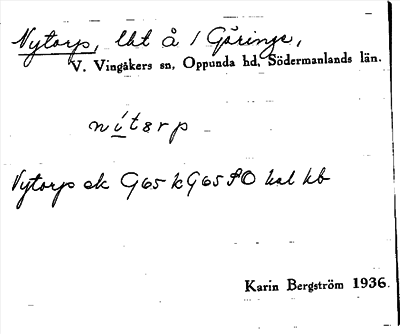 Nytorp, lht å 1 Gåringe,
V. Vingåkers sn, Oppunda hd, Södermanlands län.
nítɜrp
Nytorp ek G65 k G65 SO hal kb
Karin Bergström 1936.